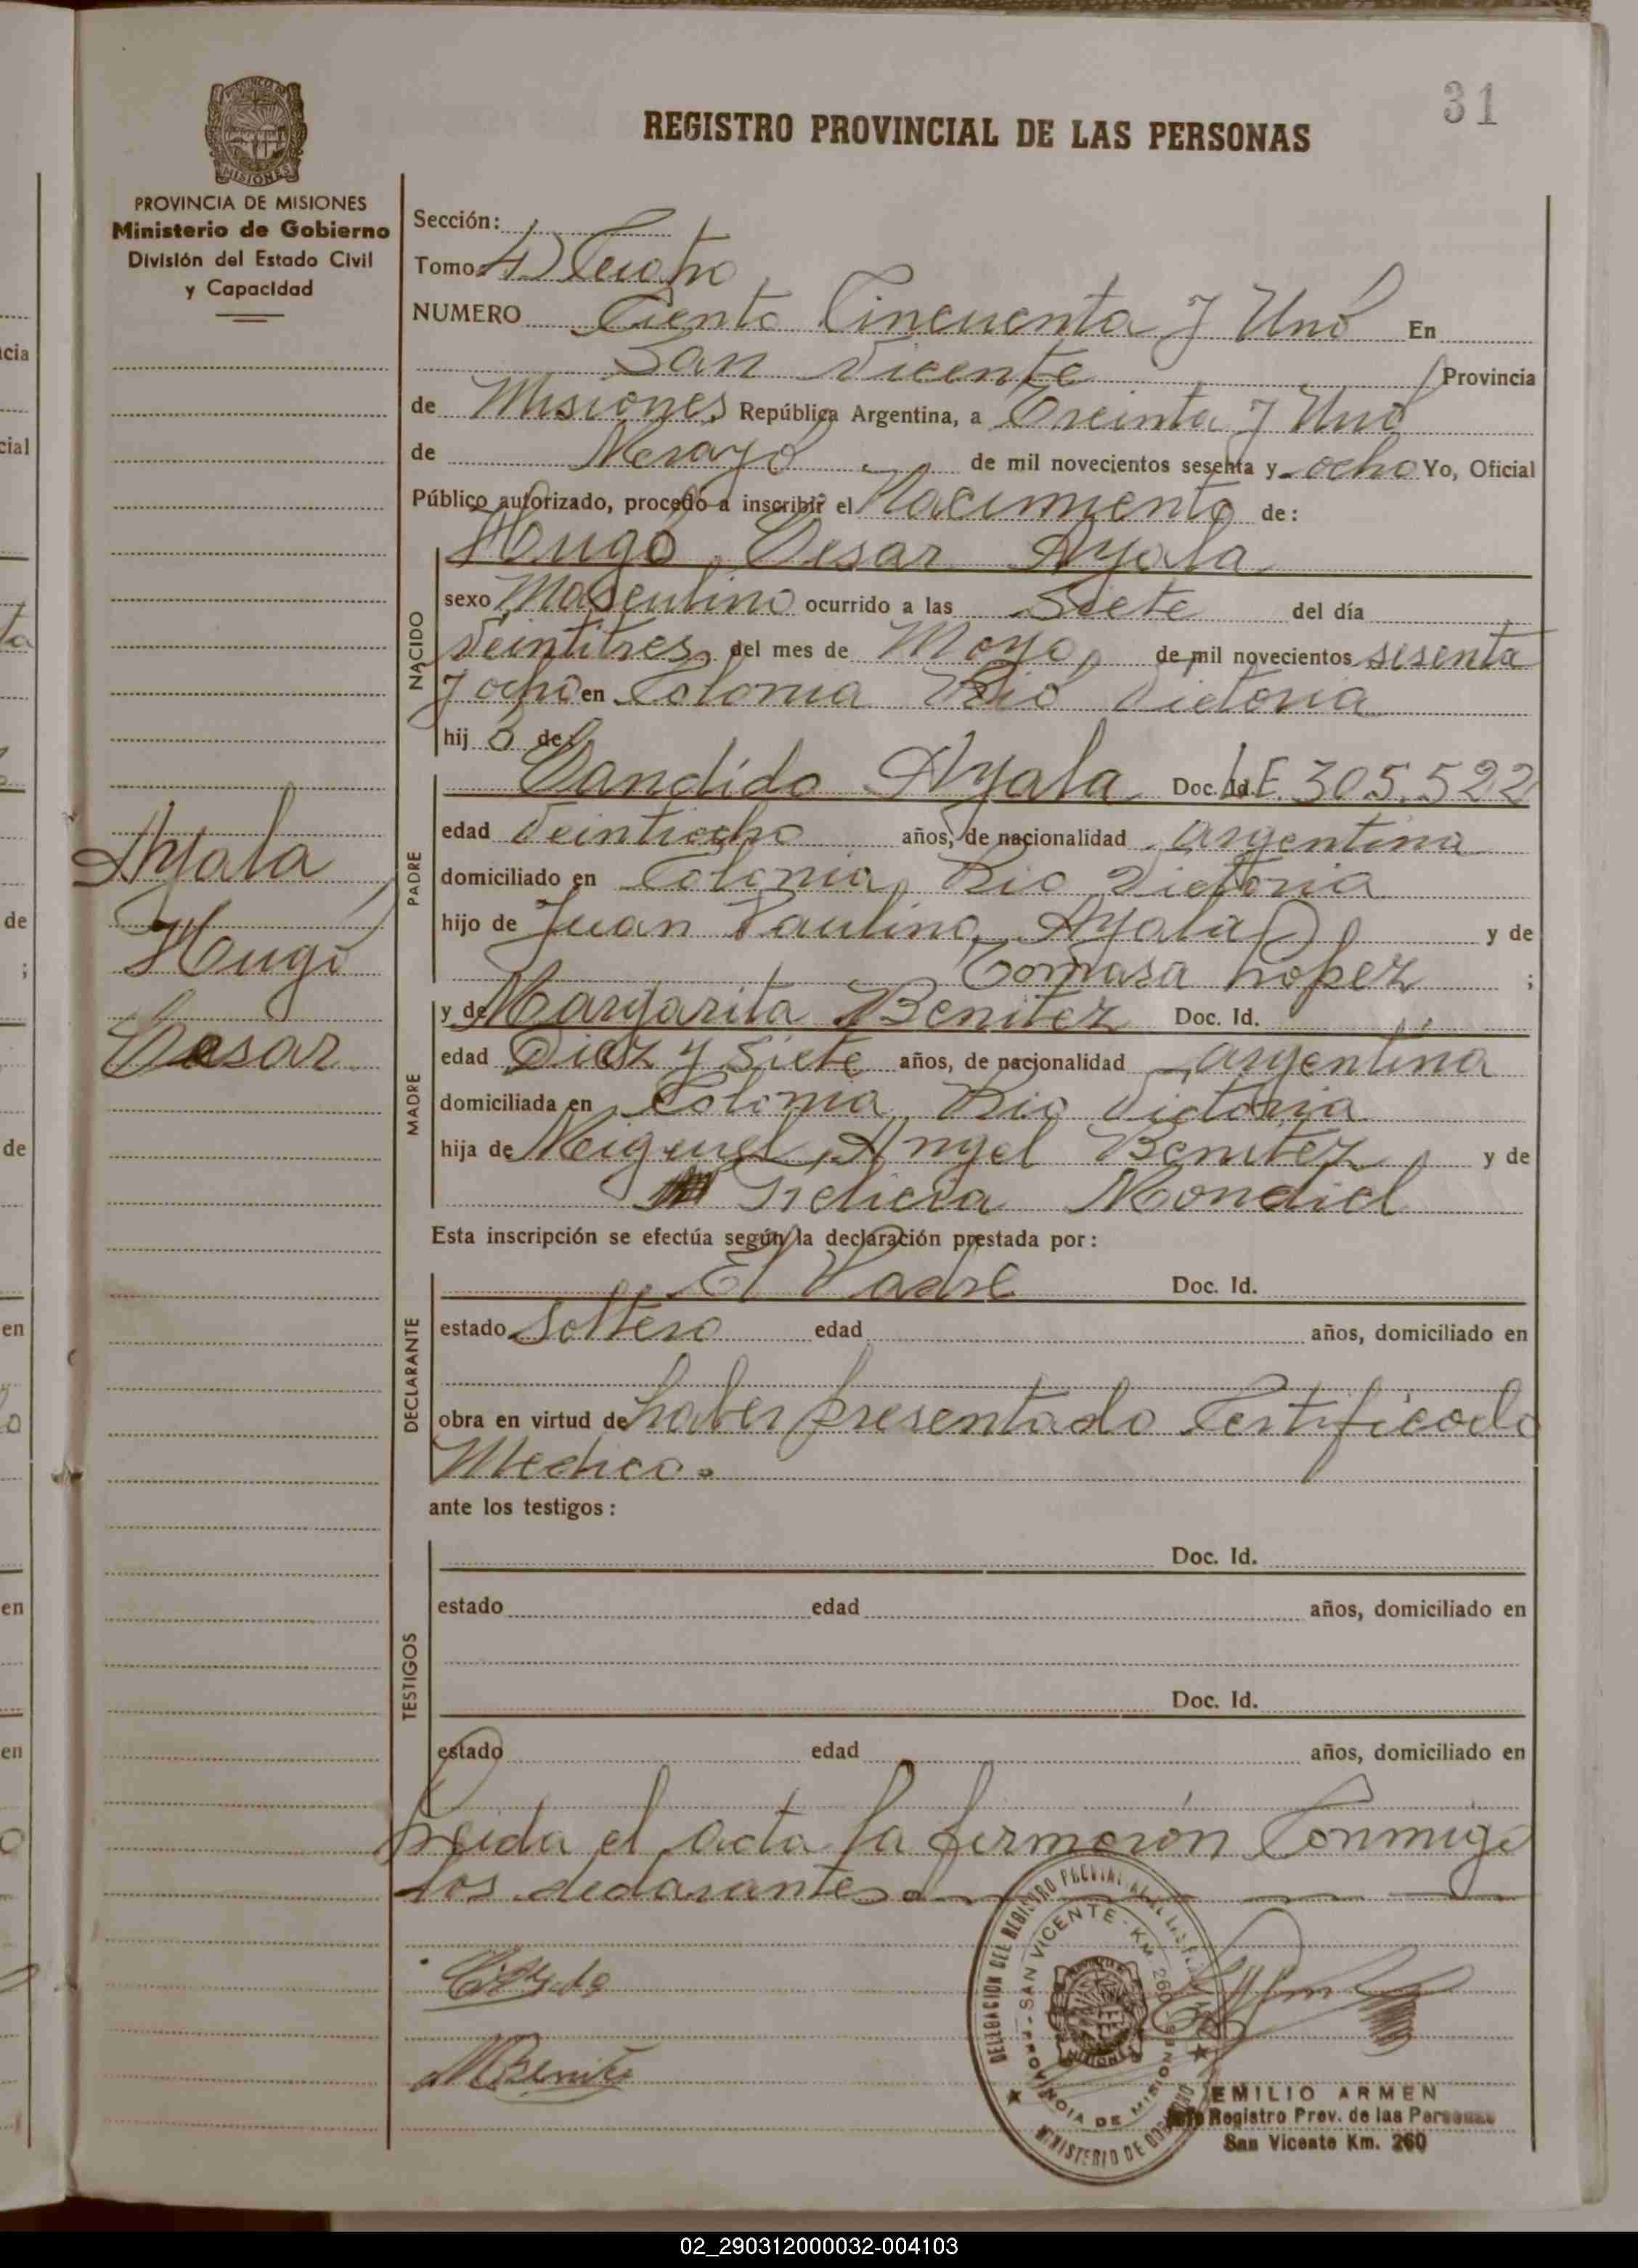 31
REGISTRO PROVINCIAL DE LAS PERSONAS
PROVINCIA DE MISIONES
Ministerio de Gobierno
División del Estado Civil
y Capacidad
Ayala
Hugo
Cesar
Sección:
Tomo 4) Cuatro
NUMERO Ciento Cincuenta y Uno En
San Vicente Provincia
de Misiones República Argentina, a Treinta y Uno
de Mayo de mil novecientos sesenta y ocho Yo, Oficial
Público autorizado, procedo a inscribir el Nacimiento de:
Hugo Cesar Ayala
NACIDO
sexo Masculino ocurrido a las Siete del día
Veintitres del mes de Mayo de mil novecientos sesenta
y ocho en Colonia Rio Victoria
hij o de:
PADRE
Candido Ayala Doc. Id. L.E. 305.522
edad Veintiocho años, de nacionalidad argentina
domiciliado en Colonia Rio Victoria
hijo de Juan Paulino Ayala y de
Tomasa Lopez ;
MADRE
y de Margarita Benitez Doc. Id.
edad Diez y Siete años, de nacionalidad argentina
domiciliada en Colonia Rio Victoria
hija de Miguel Angel Benitez y de
Felicia Mondiel
Esta inscripción se efectúa según la declaración prestada por:
DECLARANTE
El Padre Doc. Id.
estado Soltero edad años, domiciliado en
obra en virtud de haber presentado Certificado
Medico.
ante los testigos:
TESTIGOS
Doc. Id.
estado edad años, domiciliado en
Doc. Id.
estado edad años, domiciliado en
Leida el acta la firmaron Conmigo
los declarantes
MBenitez
DELEGACION DEL REGISTRO PROVINCIAL DE LAS PERSONAS
SAN VICENTE - KM. 260
PROVINCIA DE MISIONES
MISIONES
MINISTERIO DE GOBIERNO
EMILIO ARMEN
Jefe Registro Prov. de las Personas
San Vicente Km. 260
02_290312000032-004103